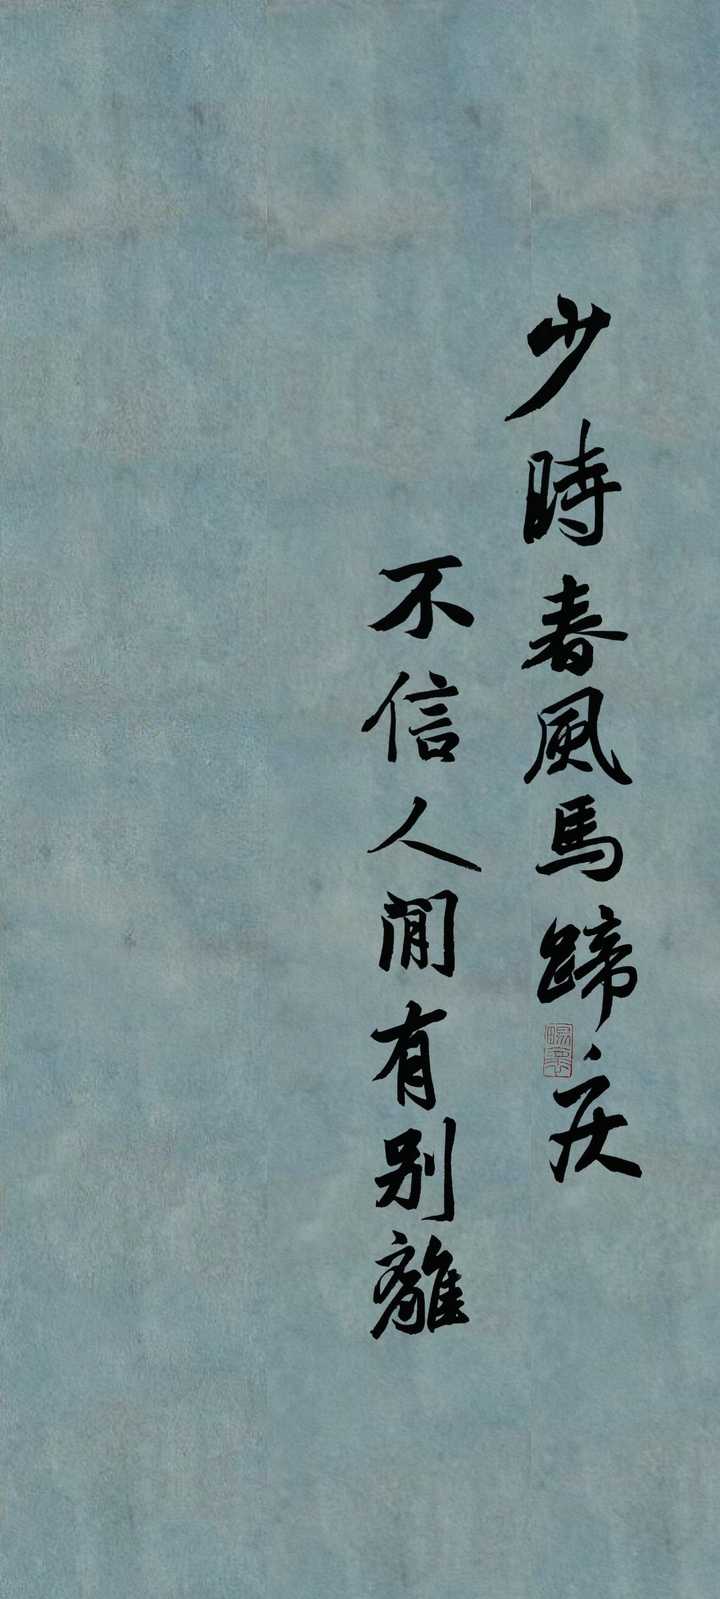 少時春風馬蹄疾
不信人閒有别離